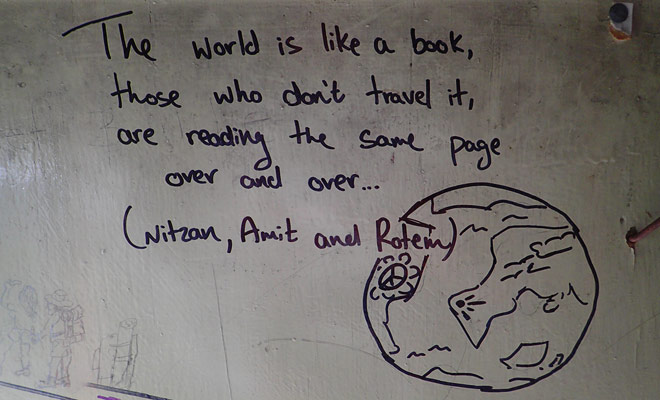 The world is like a book,
those who don't travel it,
are reading the same page
over and over...
(Nitzan, Amit and Rotem)